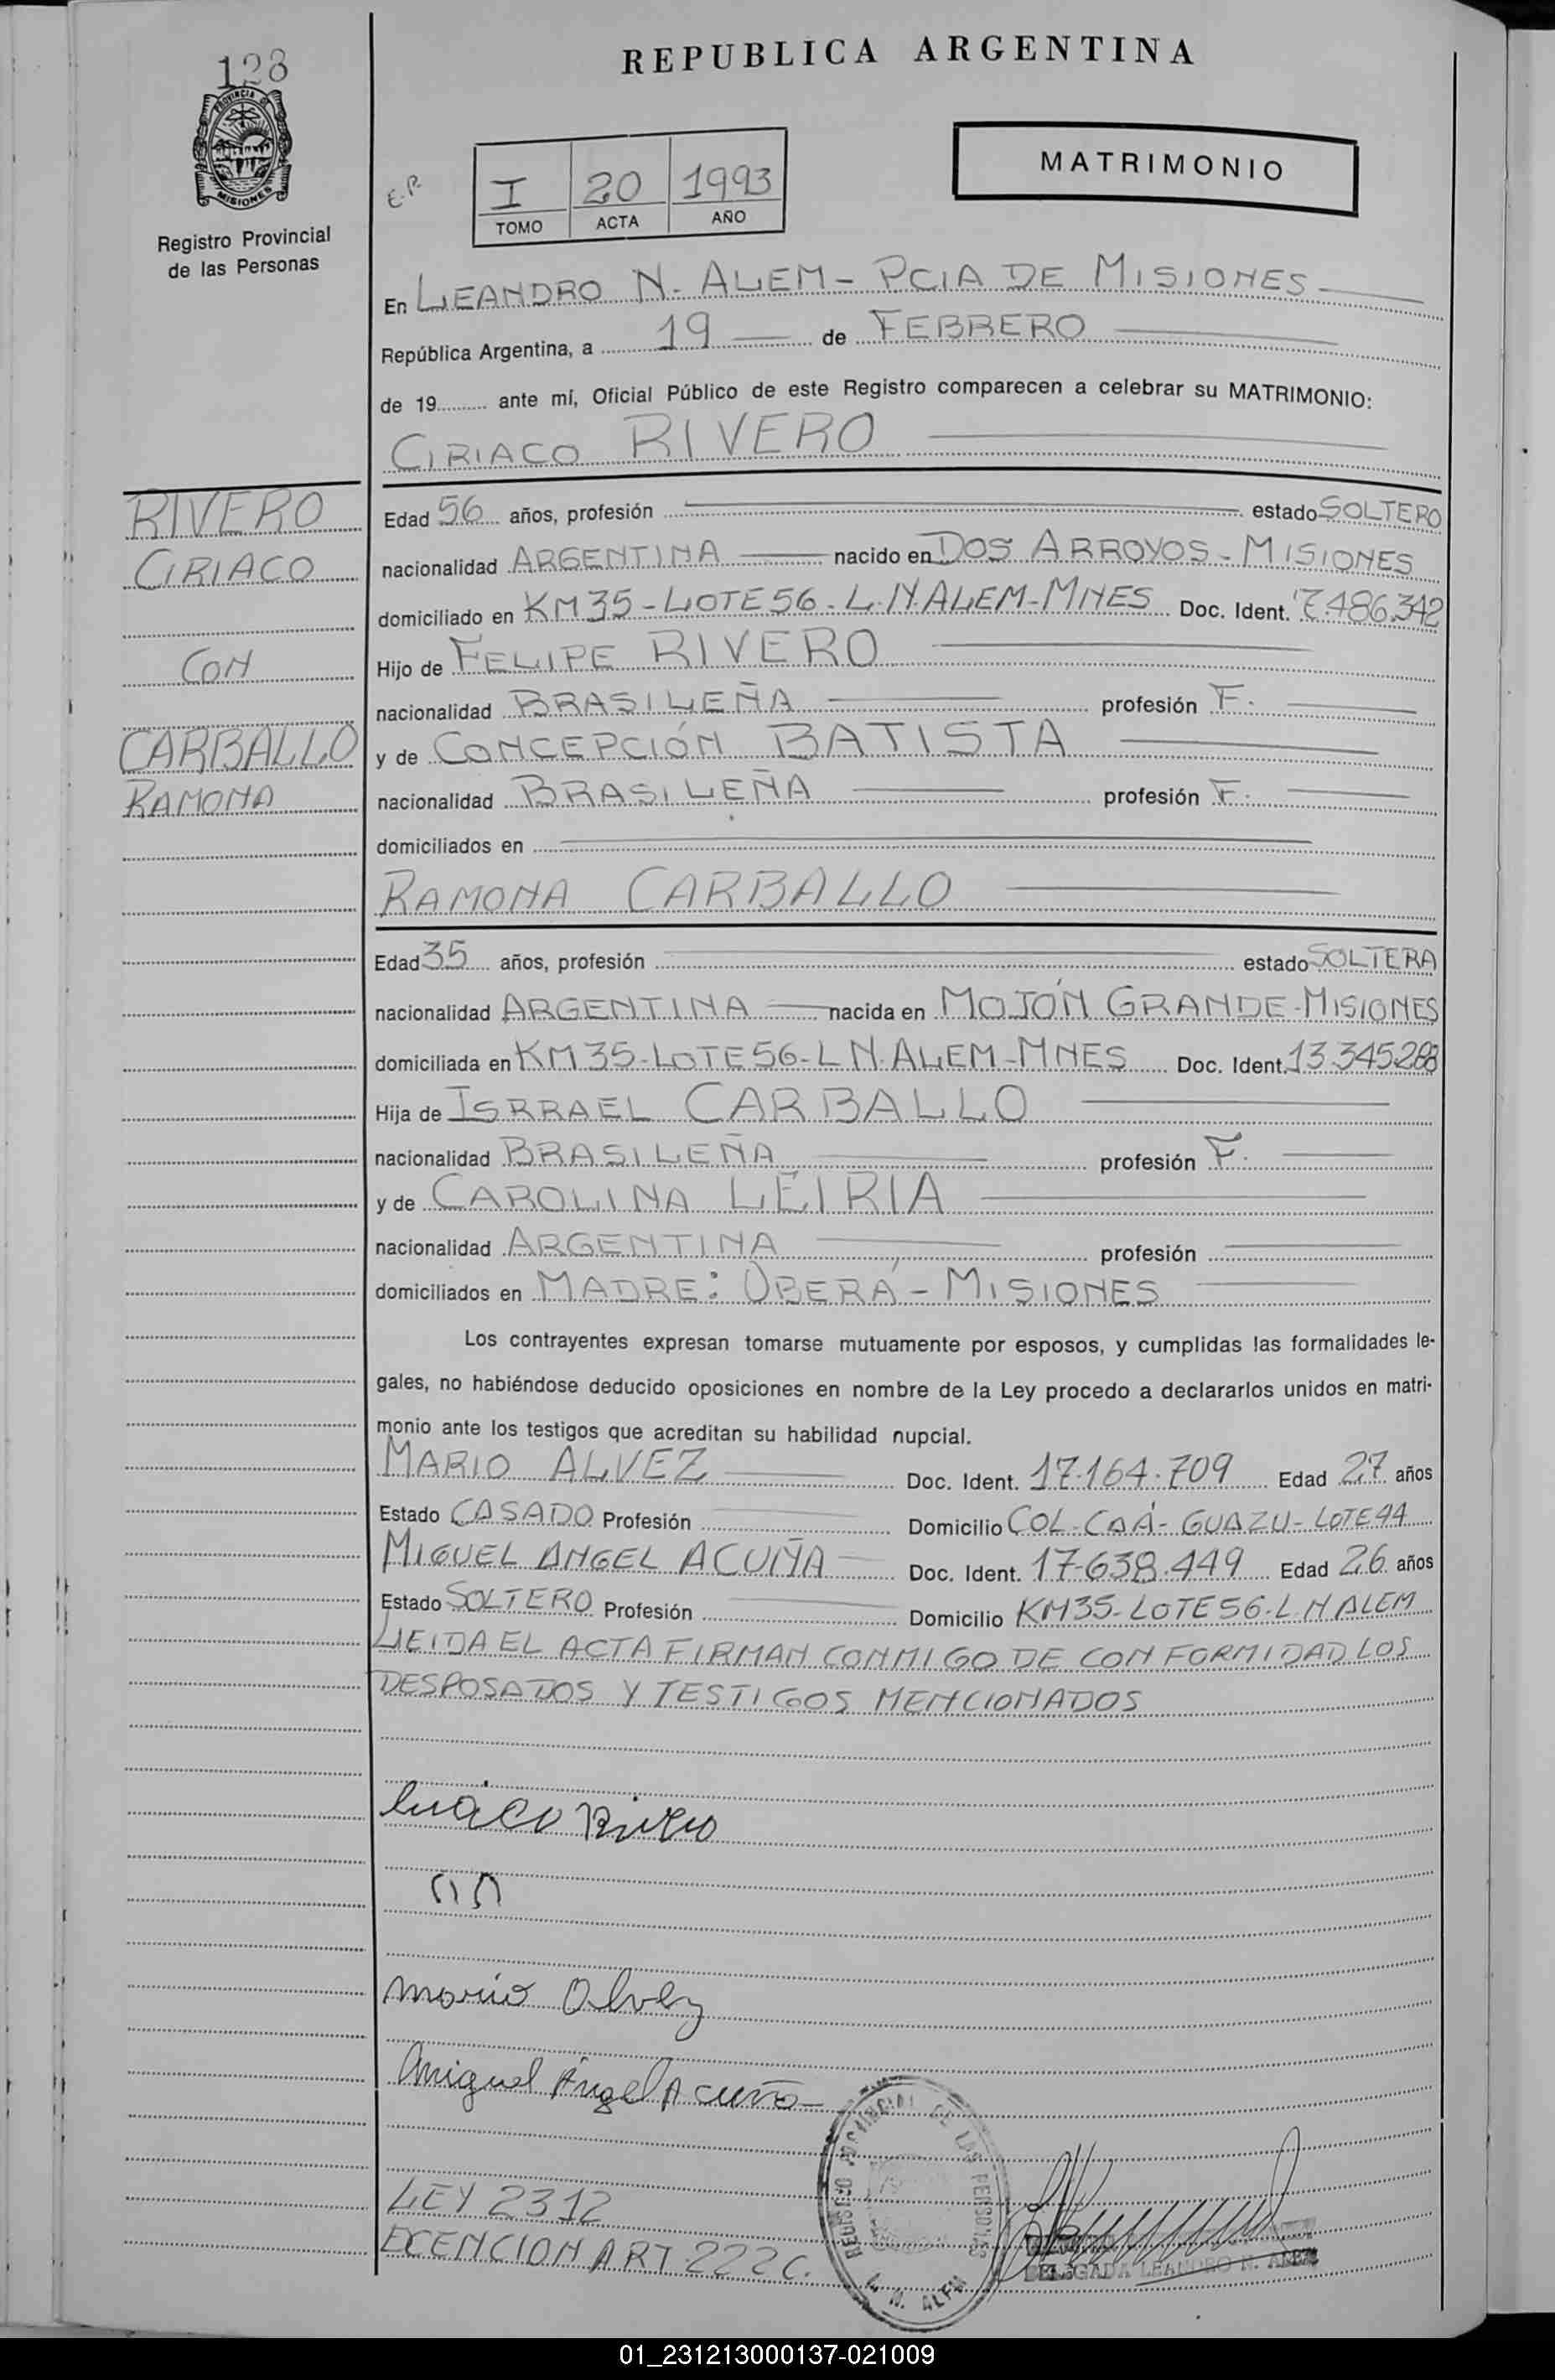 128
REPUBLICA ARGENTINA
PROVINCIA DE
MISIONES
Registro Provincial
de las Personas
E.R
I 20 1993
TOMO ACTA AÑO
MATRIMONIO
En LEANDRO N. ALEM - PCIA DE MISIONES
República Argentina, a 19 de FEBRERO
de 19 ante mí, Oficial Público de este Registro comparecen a celebrar su MATRIMONIO:
CIRIACO RIVERO
RIVERO
CIRIACO
CON
CARBALLO
RAMONA
Edad 56 años, profesión estado SOLTERO
nacionalidad ARGENTINA nacido en DOS ARROYOS - MISIONES
domiciliado en KM 35 - LOTE 56 - L.N. ALEM - MNES Doc. Ident. 7.486.342
Hijo de FELIPE RIVERO
nacionalidad BRASILEÑA profesión F.
y de CONCEPCIÓN BATISTA
nacionalidad BRASILEÑA profesión F.
domiciliados en
RAMONA CARBALLO
Edad 35 años, profesión estado SOLTERA
nacionalidad ARGENTINA nacida en MOJÓN GRANDE - MISIONES
domiciliada en KM 35 - LOTE 56 - L N. ALEM - MNES Doc. Ident. 13.345.288
Hija de ISRRAEL CARBALLO
nacionalidad BRASILEÑA profesión F.
y de CAROLINA LEIRIA
nacionalidad ARGENTINA profesión
domiciliados en MADRE: OBERÁ - MISIONES
Los contrayentes expresan tomarse mutuamente por esposos, y cumplidas las formalidades le-
gales, no habiéndose deducido oposiciones en nombre de la Ley procedo a declararlos unidos en matri-
monio ante los testigos que acreditan su habilidad nupcial.
MARIO ALVEZ Doc. Ident. 17.164.709 Edad 27 años
Estado CASADO Profesión Domicilio COL - CAÁ - GUAZU - LOTE 44
MIGUEL ANGEL ACUÑA Doc. Ident. 17.638.449 Edad 26 años
Estado SOLTERO Profesión Domicilio KM 35 - LOTE 56 - L N ALEM
LEIDA EL ACTA FIRMAN CONMIGO DE CONFORMIDAD LOS
DESPOSADOS Y TESTIGOS MENCIONADOS
Ciriaco Rivero
Mario Alvez
Miguel Angel Acuña
LEY 2312
ECENCION ART 222 C.
REGISTRO PROVINCIAL DE LAS PERSONAS
L. N. ALEM
DELEGADA LEANDRO N. ALEM
01_231213000137-021009